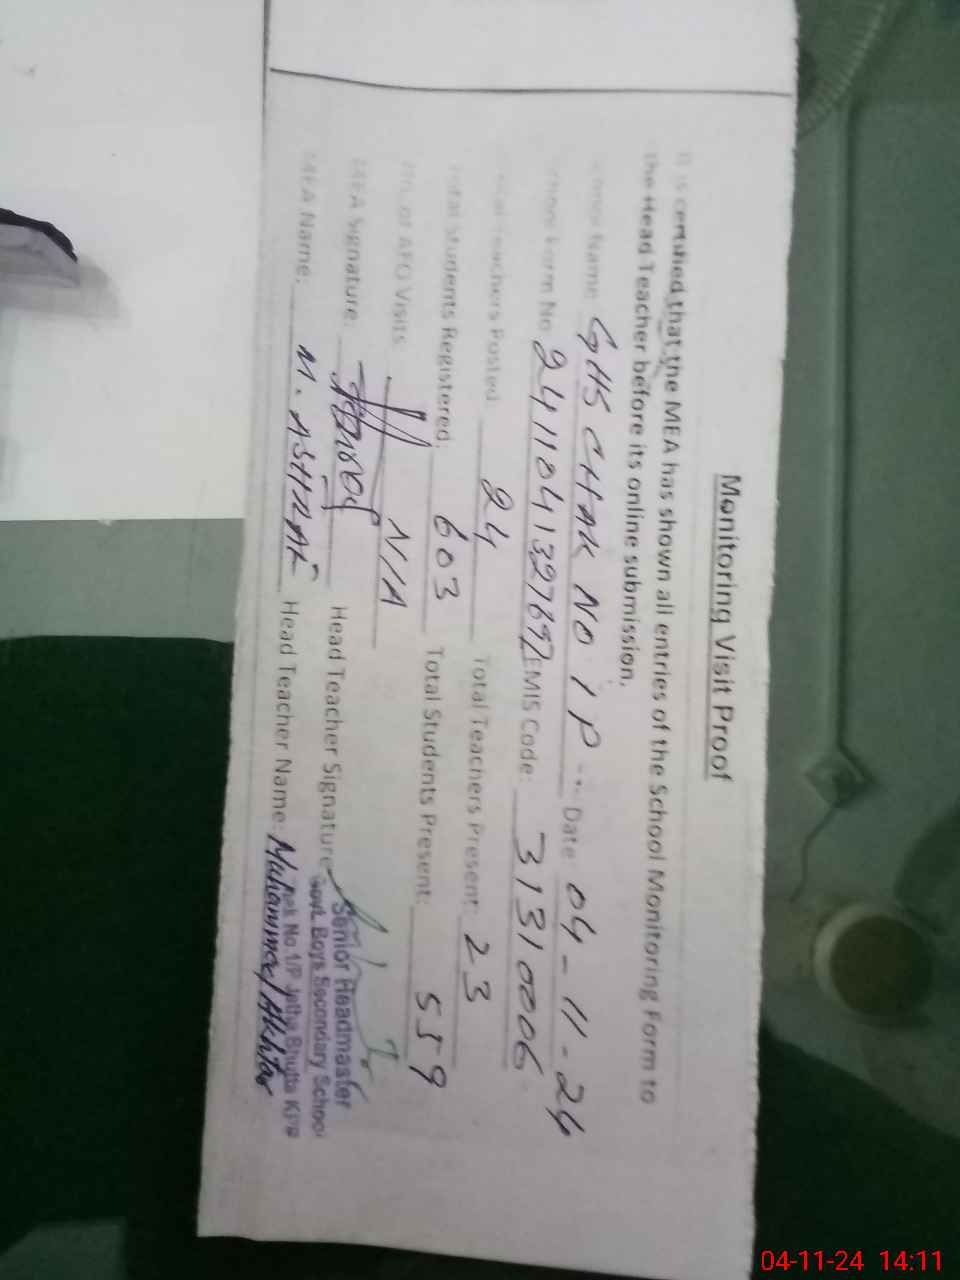 Monitoring Visit Proof
It is certified that the MEA has shown all entries of the School Monitoring Form to
the Head Teacher before its online submission.
School Name: GHS CHAK NO 1 P Date: 04-11-24
School Form No 2411041327692 EMIS Code: 31310006
Total Teachers Posted 24 Total Teachers Present: 23
Total Students Registered: 603 Total Students Present: 559
No. of AEO Visits N/A
MEA Signature: Head Teacher Signature:
Senior Headmaster
Govt. Boys Secondary School
Chak No.1/P Jetha Bhutta
MEA Name: M. ASHRAF Head Teacher Name: Muhammad Akhtar
04-11-24 14:11